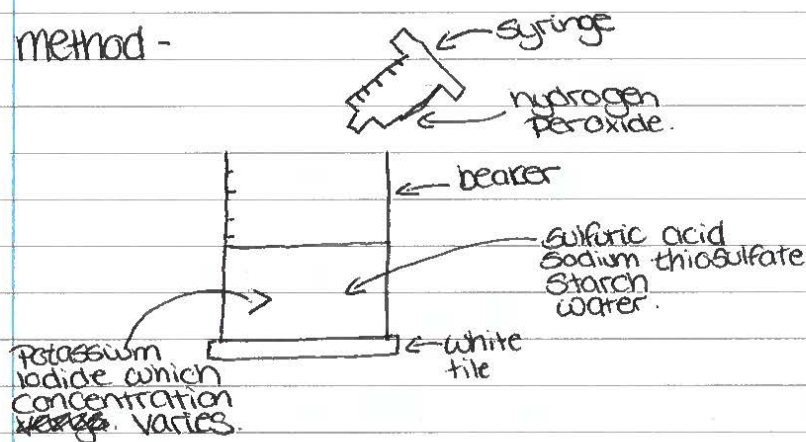 method -
syringe
hydrogen
peroxide.
beaker
sulfuric acid
sodium thiosulfate
starch
water.
Potassium
iodide which
concentration
varies.
white
tile